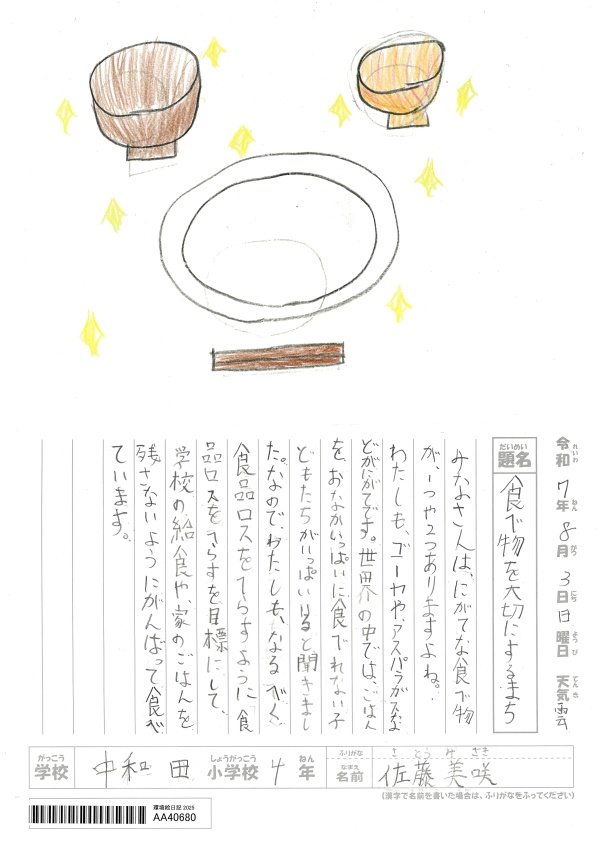 令和 7年 8月 3日 日曜日 天気 雲
れいわ ねん がつ にち ようび てんき
だいめい
題名 食べ物を大切にするまち
みなさんは、にがてな食べ物
が、一つや2つありますよね。
わたしも、ゴーヤや、アスパラガスな
どがにがてです。世界の中では、ごはん
を、おなかいっぱいに食べれない子
どもたちがいっぱいいると聞きまし
た。なので、わたしも、なるべく
食品ロスをへらすように食
品ロスをへらすを目標にして、
学校の給食や、家のごはんを
残さないようにがんばって食べ
ています。
がっこう しょうがっこう ねん ふりがな さとう みさき
学校 中和田 小学校 4年 なまえ 名前 佐藤美咲
(漢字で名前を書いた場合は、ふりがなをふってください)
環境絵日記 2025
AA40680